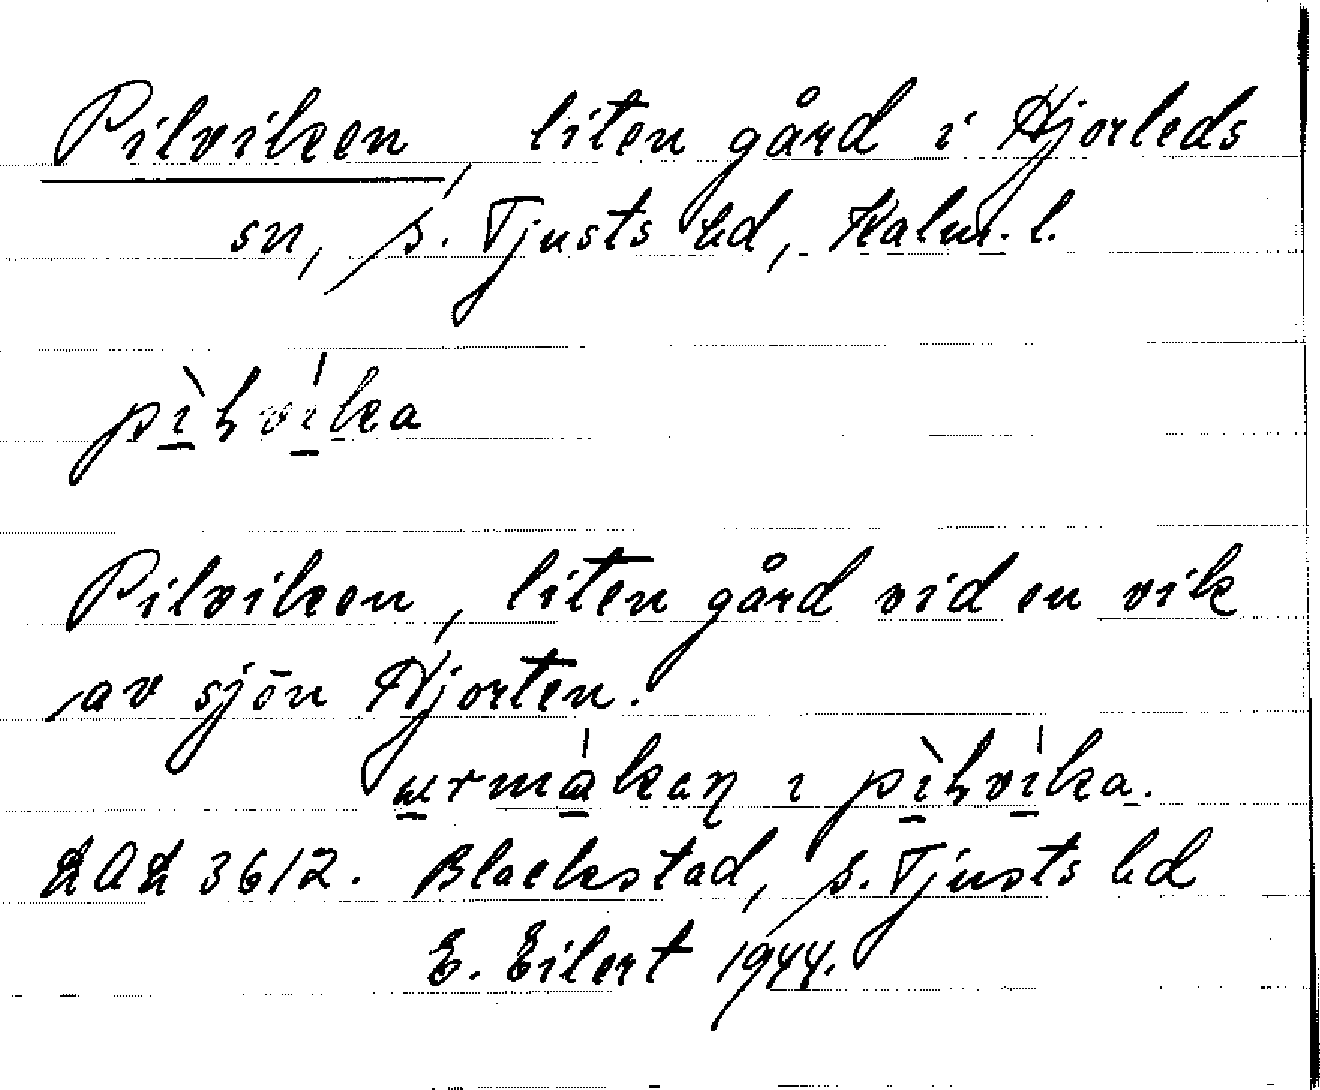 Pilviken, liten gård i Hjorteds
sn, s. Tjusts hd, Kalm. l.
pìlvíka
Pilviken, liten gård vid en vik
av sjön Hjorten.
i pìlvíka.
3612. Blackstad, s. Tjusts hd
E. Eilert 1944.